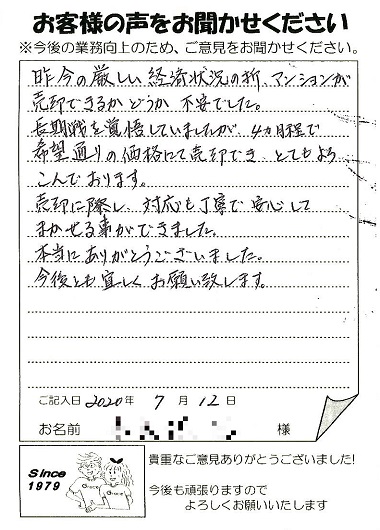 お客様の声をお聞かせください
※今後の業務向上のため、ご意見をお聞かせください。
昨今の厳しい経済状況の折、マンションが
売却できるかどうか不安でした。
長期戦を覚悟していましたが、4ヵ月程で
希望通りの価格にて売却でき、とてもよろ
こんでおります。
売却に際し、対応も丁寧で安心して
まかせる事ができました。
本当にありがとうございました。
今後とも宜しくお願い致します。
ご記入日 2020年 7月 12日
お名前 様
Since
1979
貴重なご意見ありがとうございました!
今後も頑張りますので
よろしくお願いいたします